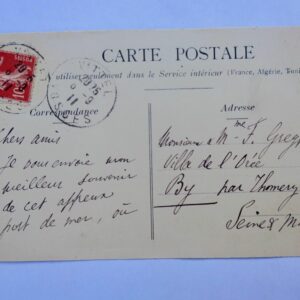 CARTE POSTALE
utiliser seulement dans le Service intérieur (France, Algérie, Tunis
Correspondance
Adresse
VITTEL
VOSGES
chers amis
Je vous envoie mon
meilleur souvenir
de cet affreux
port de mer, où
Monsieur & Me F. Greg
Villa de l'Orée
By par Thomery
Seine & M